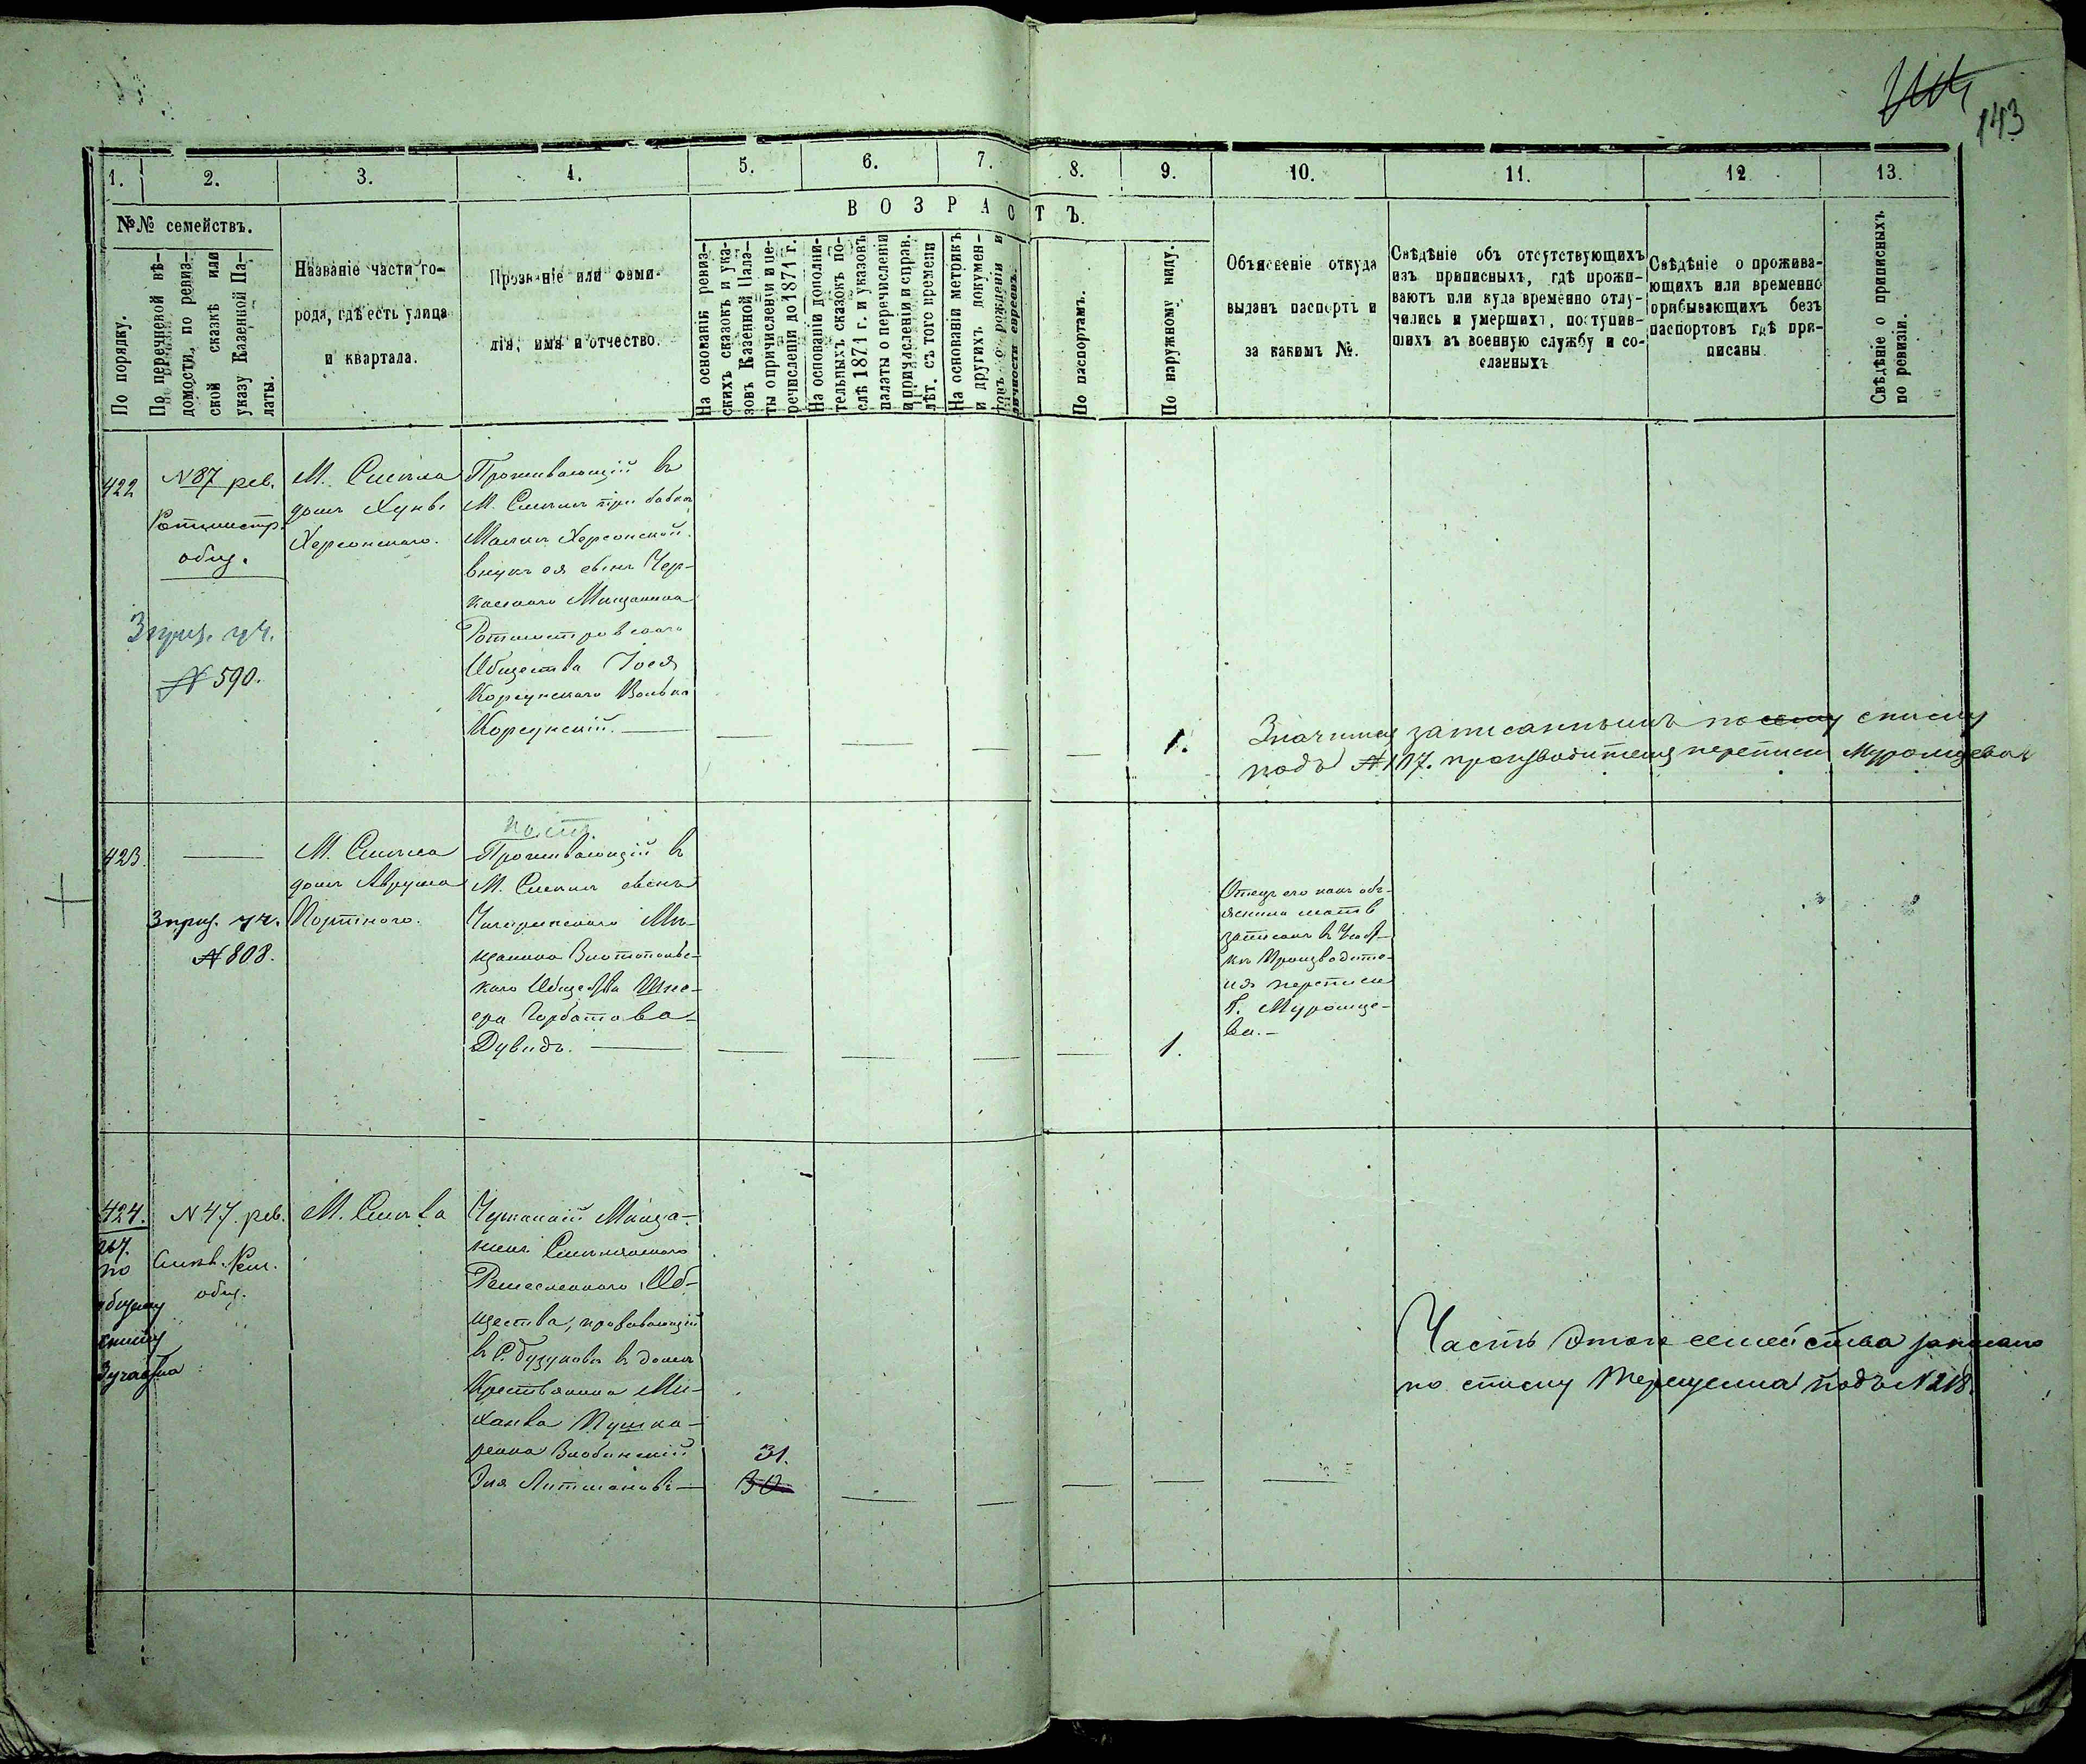 143
1.
2.
3.
4.
5.
6.
7.
8.
9.
10.
11.
12
13.
№№ семействъ.
По порядку.
По перечневой вѣ-
домости, по ревиз-
ской сказкѣ или
указу Казенной Па-
латы.
Названіе части го-
рода, гдѣ есть улица
и квартала.
Прозваніе или фами-
лія, имя и отчество.
ВОЗРАСТЪ.
На основаніи ревиз-
скихъ сказокъ и ука-
зовъ Казенной Пала-
ты о причисленіи и пе-
речисленіи до 1871 г.
На основаніи дополни-
тельныхъ сказокъ по-
слѣ 1871 г. и указовъ
палаты о перечисленіи
и причисленіи и справ.
лѣт. съ того времени
На основаніи метрикъ
и другихъ докумен-
товъ о рожденіи и
личности евреевъ.
По паспортамъ.
По наружному виду.
Объясненіе откуда
выданъ паспортъ и
за какимъ №.
Свѣдѣніе объ отсутствующихъ
изъ приписныхъ, гдѣ прожи-
ваютъ или куда временно отлу-
чились и умершихъ, поступив-
шихъ въ военную службу и со-
сланныхъ
Свѣдѣніе о прожива-
ющихъ или временно
прибывающихъ безъ
паспортовъ гдѣ при-
писаны.
Свѣдѣніе о приписныхъ
по ревизіи.
422
N87 рев.
Ротмистр.
общ.
3 приз. уч.
№ 590.
М. Смѣла
домъ
Херсонскаго.
Проживающій въ
М. Смѣлѣ при бабкѣ
Малкѣ Херсонской
внукъ ея сынъ Чер-
каскаго Мѣщанина
Ротмистровскаго
Общества Іося
Корсунскаго Волько
Корсунскій.
1.
Значится записаннымъ по сему списку
подъ №107. производителя переписи Муромцева
423.
3 приз. уч.
№ 808.
М. Смѣла
домъ Аврума
Портного.
Проживающій въ
М. Смѣлѣ сынъ
Чигиринскаго Мѣ-
щанина Златополь-
скаго Общества Шне-
ера Горбатова
Дувидъ.
1.
Отецъ его какъ объ-
яснила мать
записанъ въ
Производите-
ля переписи
Г. Муромце-
ва.
424.
по
общему
списку
3 участка
N 47. рев.
Смѣл. Рем.
общ.
М. Смѣла
Черкаскій Мѣща-
нинъ Смѣлянскаго
Ремесленнаго Об-
щества, проживающій
въ С. Бузуковѣ въ домѣ
Крестьянина Ми-
хаила Пушка-
ренка Злобинскій
Эля Литмановъ
31.
30
Часть этого семейства записано
по списку Терещенка подъ N218.